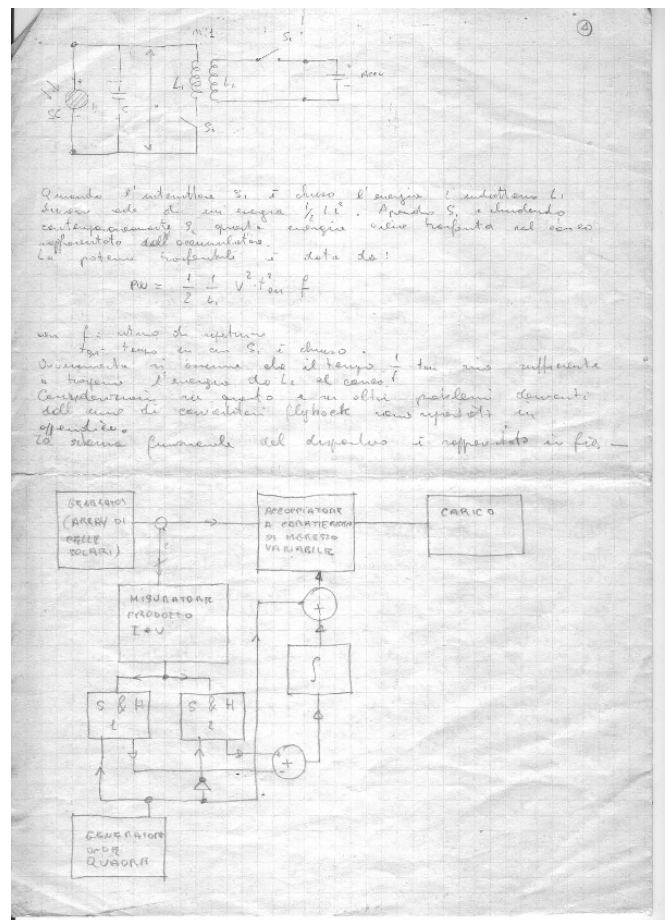 4
n:1
S2
L1
L2
C
SC
S1
Quando l'interruttore S1 è chiuso l'energia l'induttanza L1
di un energia 1/2 Li². Aprendo S1 e chiudendo
contemporaneamente S2 questa energia viene trasferita nel carico
rappresentato dall'accumulatore.
La potenza trasferibile è data da:
PW = 1/2 1/L1 V² t²on f
con f = ritmo di
ton = tempo in cui S1 è chiuso.
Ovviamente si assume che il tempo 1/f - ton sia sufficiente
a trasferire l'energia da L2 al carico.
Considerazioni su questo e su altri problemi
di convertitori flyback sono riportati in
appendice.
Lo schema funzionale del dispositivo è rappresentato in fig.
GENERATORE
(ARRAY DI
CELLE
SOLARI)
ACCOPPIATORE
A CARATTERISTICA
DI INGRESSO
VARIABILE
CARICO
MISURATORE
PRODOTTO
I * V
+
∫
S & H
1
S & H
2
+
-
GENERATORE
ONDE
QUADRE